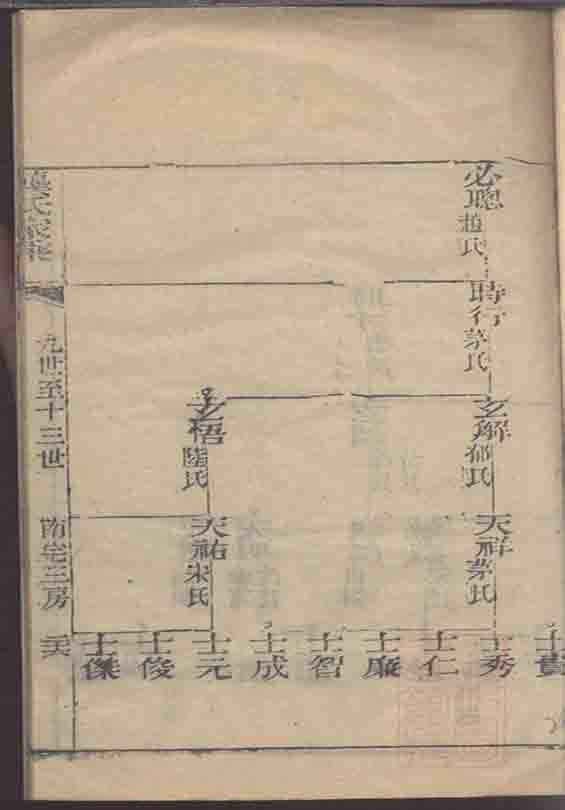 必聰趙氏
時行茅氏
玄解郁氏
玄悟陸氏
天祥茅氏
天祐宋氏
士貴
士秀
士仁
士廉
士智
士成
士元
士俊
士傑
氏家乘
九世至十三世
南宅三房